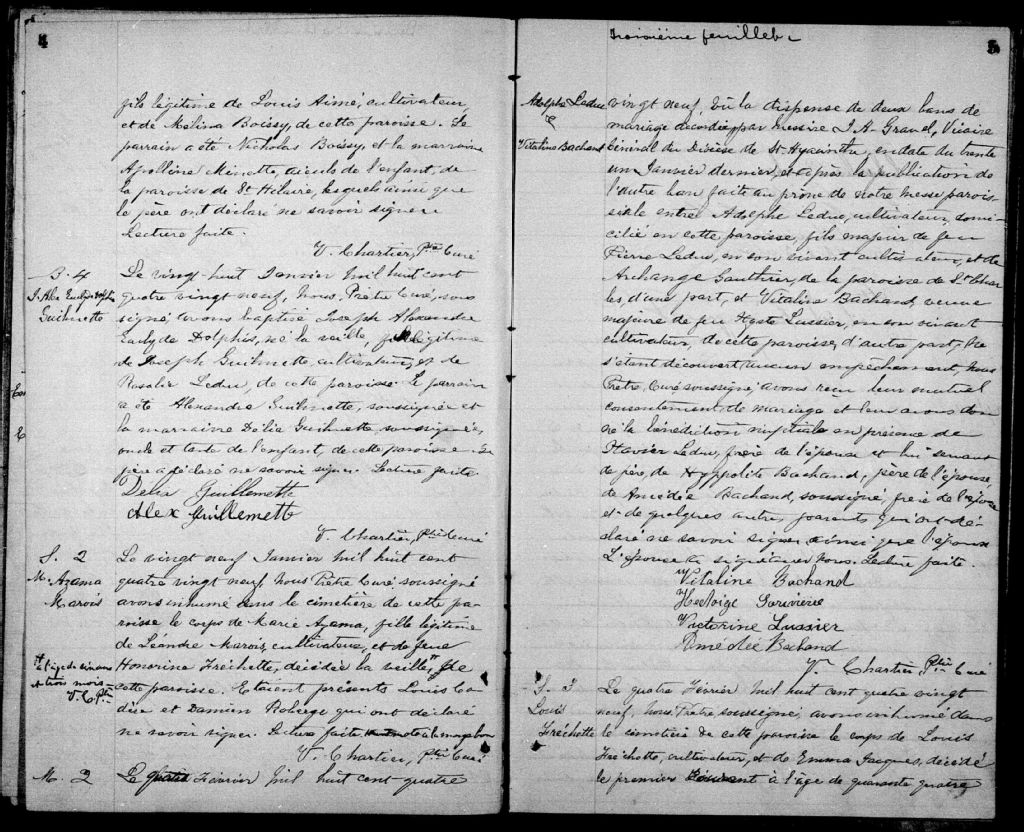 4
fils légitime de Louis Aimé, cultivateur,
et de Mélina Boissy, de cette paroisse. Le
parrain a été Nicholas Boissy, et la marraine
Apolline Minette, aïeuls de l'enfant, de
la paroisse de St Hilaire, lesquels ainsi que
le père ont déclaré ne savoir signer.
Lecture faite.
V. Chartier, Ptre Curé
B. 4
J. Alex
Guilmette
Le vingt-huit Janvier mil huit cent
quatre vingt neuf, Nous, Prêtre Curé, sous
signé, avons baptisé Joseph Alexandre
Dolphis, né la veille, fils légitime
de Joseph Guilmette, cultivateur, et de
Rosalie Leduc, de cette paroisse. Le parrain
a été Alexandre Guilmette, soussigné et
la marraine Délia Guilmette, soussignée,
oncle et tante de l'enfant, de cette paroisse. Le
père a déclaré ne savoir signer. Lecture faite.
Délia Guillemette
Alex Guillemette
V. Chartier, Ptre Curé
S. 2
M. Azama
Marois
Le vingt neuf Janvier mil huit cent
quatre vingt neuf, Nous Prêtre Curé soussigné
avons inhumé dans le cimetière de cette pa-
roisse le corps de Marie Azama, fille légitime
de Léandre Marois, cultivateur, et de feue
Honorine Fréchette, décédée la veille, de
à l'âge de cinq ans
trois mois.
V. C. Ptre
cette paroisse. Etaient présents Louis Ca-
dieu et Damien Roberge qui ont déclaré
ne savoir signer. Lecture faite.
V. Chartier, Ptre Curé
M. 2
Le quatre Février mil huit cent quatre
Troisième feuillet
5
Adolphe Leduc
&
Vitaline Bachand
vingt neuf, Vu la dispense de deux bans de
mariage accordée par Messire J. A. Gravel, Vicaire
Général du Diocèse de St Hyacinthe, en date du trente
un Janvier dernier, et après la publication de
l'autre ban faite au prône de notre messe parois-
siale entre Adolphe Leduc, cultivateur, domi-
cilié en cette paroisse, fils majeur de feu
Pierre Leduc, en son vivant cultivateur, et de
Archange Gauthier, de la paroisse de St Char
les, d'une part, et Vitaline Bachand, veuve
majeure de feu Lussier, en son vivant
cultivateur de cette paroisse, d'autre part; Ne
s'étant découvert aucun empêchement, Nous
Prêtre, Curé soussigné, avons reçu leur mutuel
consentement de mariage et leur avons don
né la bénédiction nuptiale en présence de
Xavier Leduc, frère de l'époux et lui servant
de père, de Hyppolite Bachand, père de l'épouse,
de Amédée Bachand, soussigné, frère de l'épouse
et de quelques autres parents qui ont dé-
claré ne savoir signer ainsi que l'époux.
L'épouse a signé avec nous. Lecture faite.
Vitaline Bachand
Victorine Lussier
Amédée Bachand
V. Chartier, Ptre Curé
S. 3
Louis
Fréchette
Le quatre Février mil huit cent quatre vingt
neuf, Nous Prêtre soussigné, avons inhumé dans
le cimetière de cette paroisse le corps de Louis
Fréchette, cultivateur, et de Emma Jacques, décédé
le premier courant à l'âge de quarante quatre